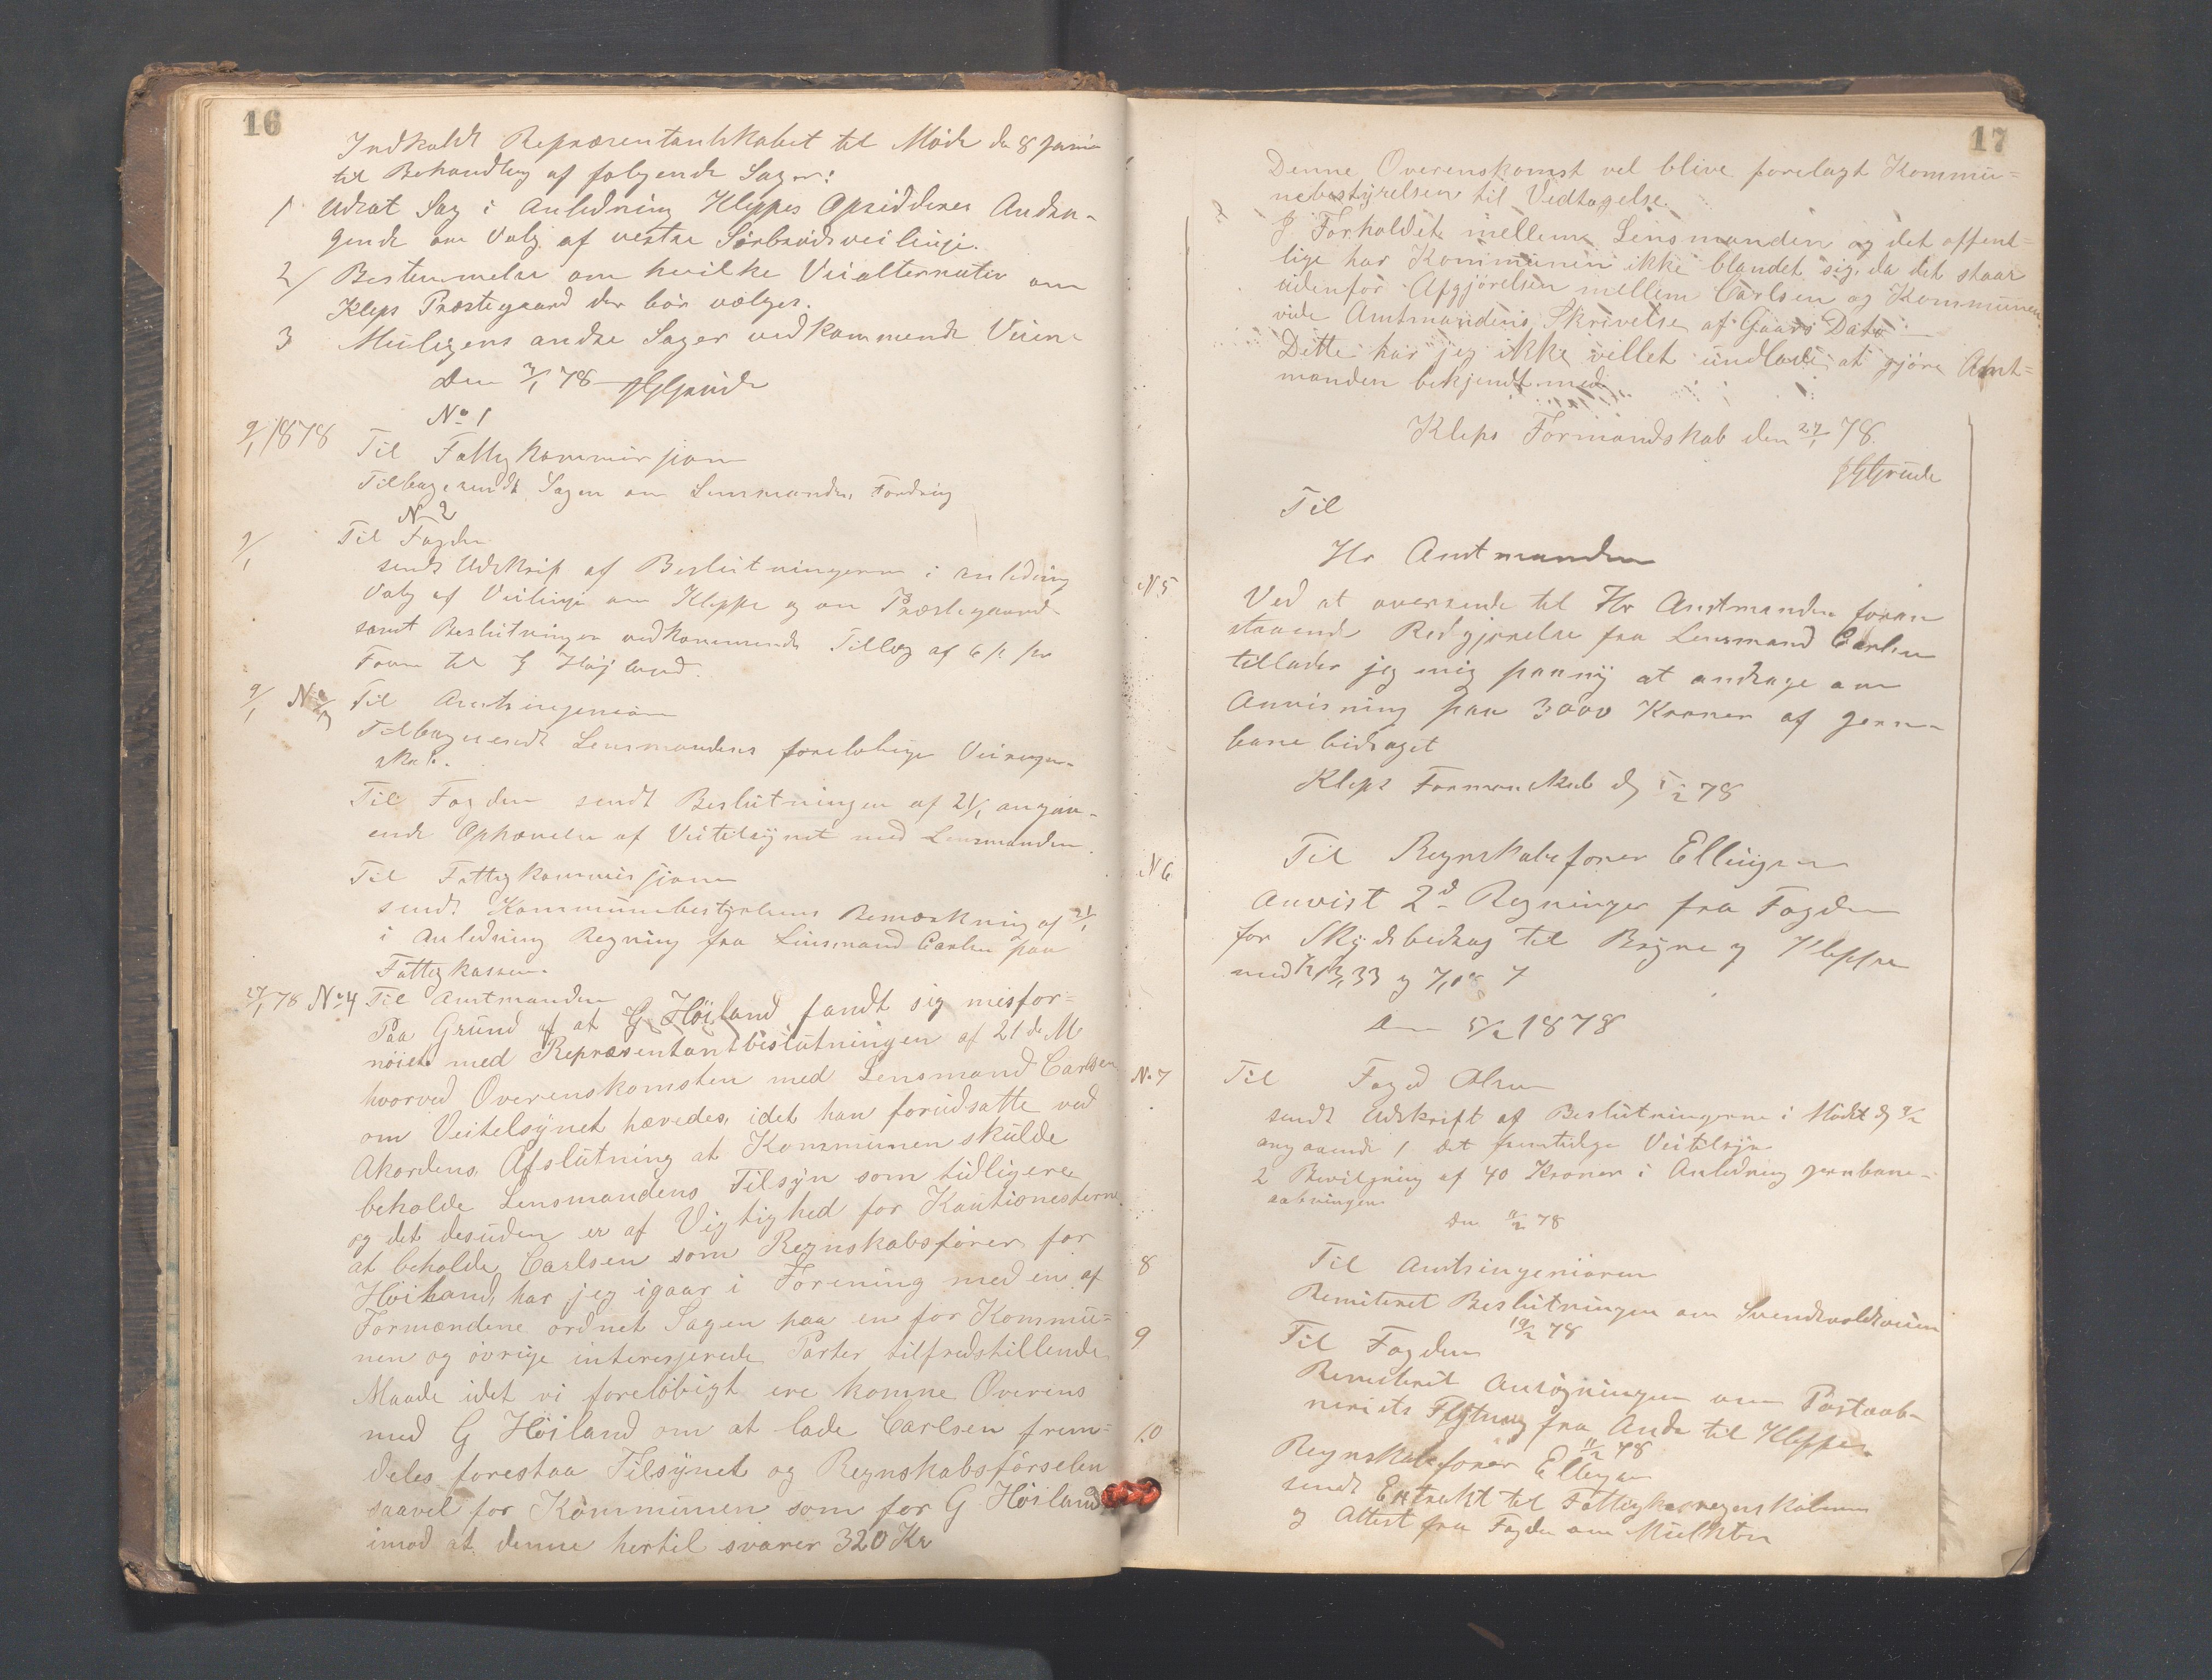 16
Indkaldt Repræsentantskabet til Møde den 8 Janua
til Behandling af følgende Sager:
1 Udsat Sag i Anledning Kleppes Opsidderes Andra-
gende om Valg af vestre Sørbrødsveilinje.
2/ Bestemmelse om hvilke Veialternativ om
Kleps Præstegaard der bør vælges.
3 Muligens andre Sager vedkommende Veien
Den 3/1 78 Grude
No 1
9/1 1878 Til Fattigkommissjonen
Tilbagesendt Sagen om Lensmandens Fordring
N 2
9/1 Til Fogden
sendt Udskrift af Beslutningerne i Anledning
Valg af Veilinje om Kleppe og om Præstegaard
samt Beslutningen vedkommende Tillæg af 6 s pr
Favn til G Høiland.
9/1 No 3 Til Amtsingeniøren
Tilbagesendt Lensmandens foreløbige Veiregn-
skab.
Til Fogden sendt Beslutningen af 21/1 angaa-
ende Ophævelse af Veitilsynet med Lensmanden.
Til Fattigkommissjonen
sendt Kommunebestyrelsens Bemærkning af 21/1
i Anledning Regning fra Linsmand Carlsen paa
Fattigkassen.
27/1 78 No 4 Til Amtmanden
Paa Grund af at G Höiland fandt sig misfor=
nöiet med Repræsentantbeslutningen af 21 d. M.
hvorved Overenskomsten med Lensmand Carlsen
om Veitelsynet hævedes, idet han forudsatte ved
Akordens Afslutning at Kommunen skulde
beholde Lensmandens Tilsyn som tidligere
og det desuden er af Vigtighed for Kautionesterne
at beholde Carlsen som Regnskabsfører for
Höiland, har jeg igaar i Forening med en af
Formændene ordnet Sagen paa en for Kommu=
nen og övrige interesserede Parter tilfredstillende
Maade idet vi foreløbigt ere komne Overens
med G Höiland om at lade Carlsen frem=
deles forestaa Tilsynet og Regnskabsförselen
saavel for Kommunen som for G Höiland
imod at denne hertil svarer 320 Kr
17
Denne Overenskomst vel blive forelagt Kommu=
nebestyrelsen til Vedtagelse.
I Forholdet mellem Lensmanden og det offent=
lige har Kommunen ikke blandet sig, da det staar
udenfor Afgjörelsen mellem Carlsen og Kommunen.
vide Amtmandens Skrivelse af Gaars Dato
Dette har jeg ikke villet undlade at gjöre Amt=
manden bekjendt med.
Kleps Formandskab den 27/1 78.
Grude
Til
Hr Amtmanden
N 5 Ved at oversende til Hr Amtmanden foran
staaende Redgjørelse fra Lensmand Carlsen
tillader jeg mig paany at andrage om
Anvisning paa 3000 Kroner af Jern-
banebidraget
Kleps Formandskab d 5/2 78
N 6 Til Regnskabsfører Ellingsen
Anvist 2 d Regninger fra Fogden
for Skydsbidrag til Bryne og Kleppe
med Kr 13,33 og
5/2 1878
No 7 Til Foged Olsen
sendt Udskrift af Beslutningerne i Mødet d 9/2
angaaende 1 det fremtidige Veitilsyn
2 Bevilgning af 40 Kroner i Anledning Jernbane-
aabningen.
Den 11/2 78
8 Til Amtsingeniøren
Remiteret Beslutningen om Svendsvoldveien
19/2 78
9 Til Fogden
Remiteret Ansøgningen om Postaab-
neriets Flytning fra Anda til Kleppe.
11/2 78
10 Regnskabsfører Ellingsen
sendt Extrakt til Fattigkasregnskabernes
og Attest fra Fogden om Mulkter